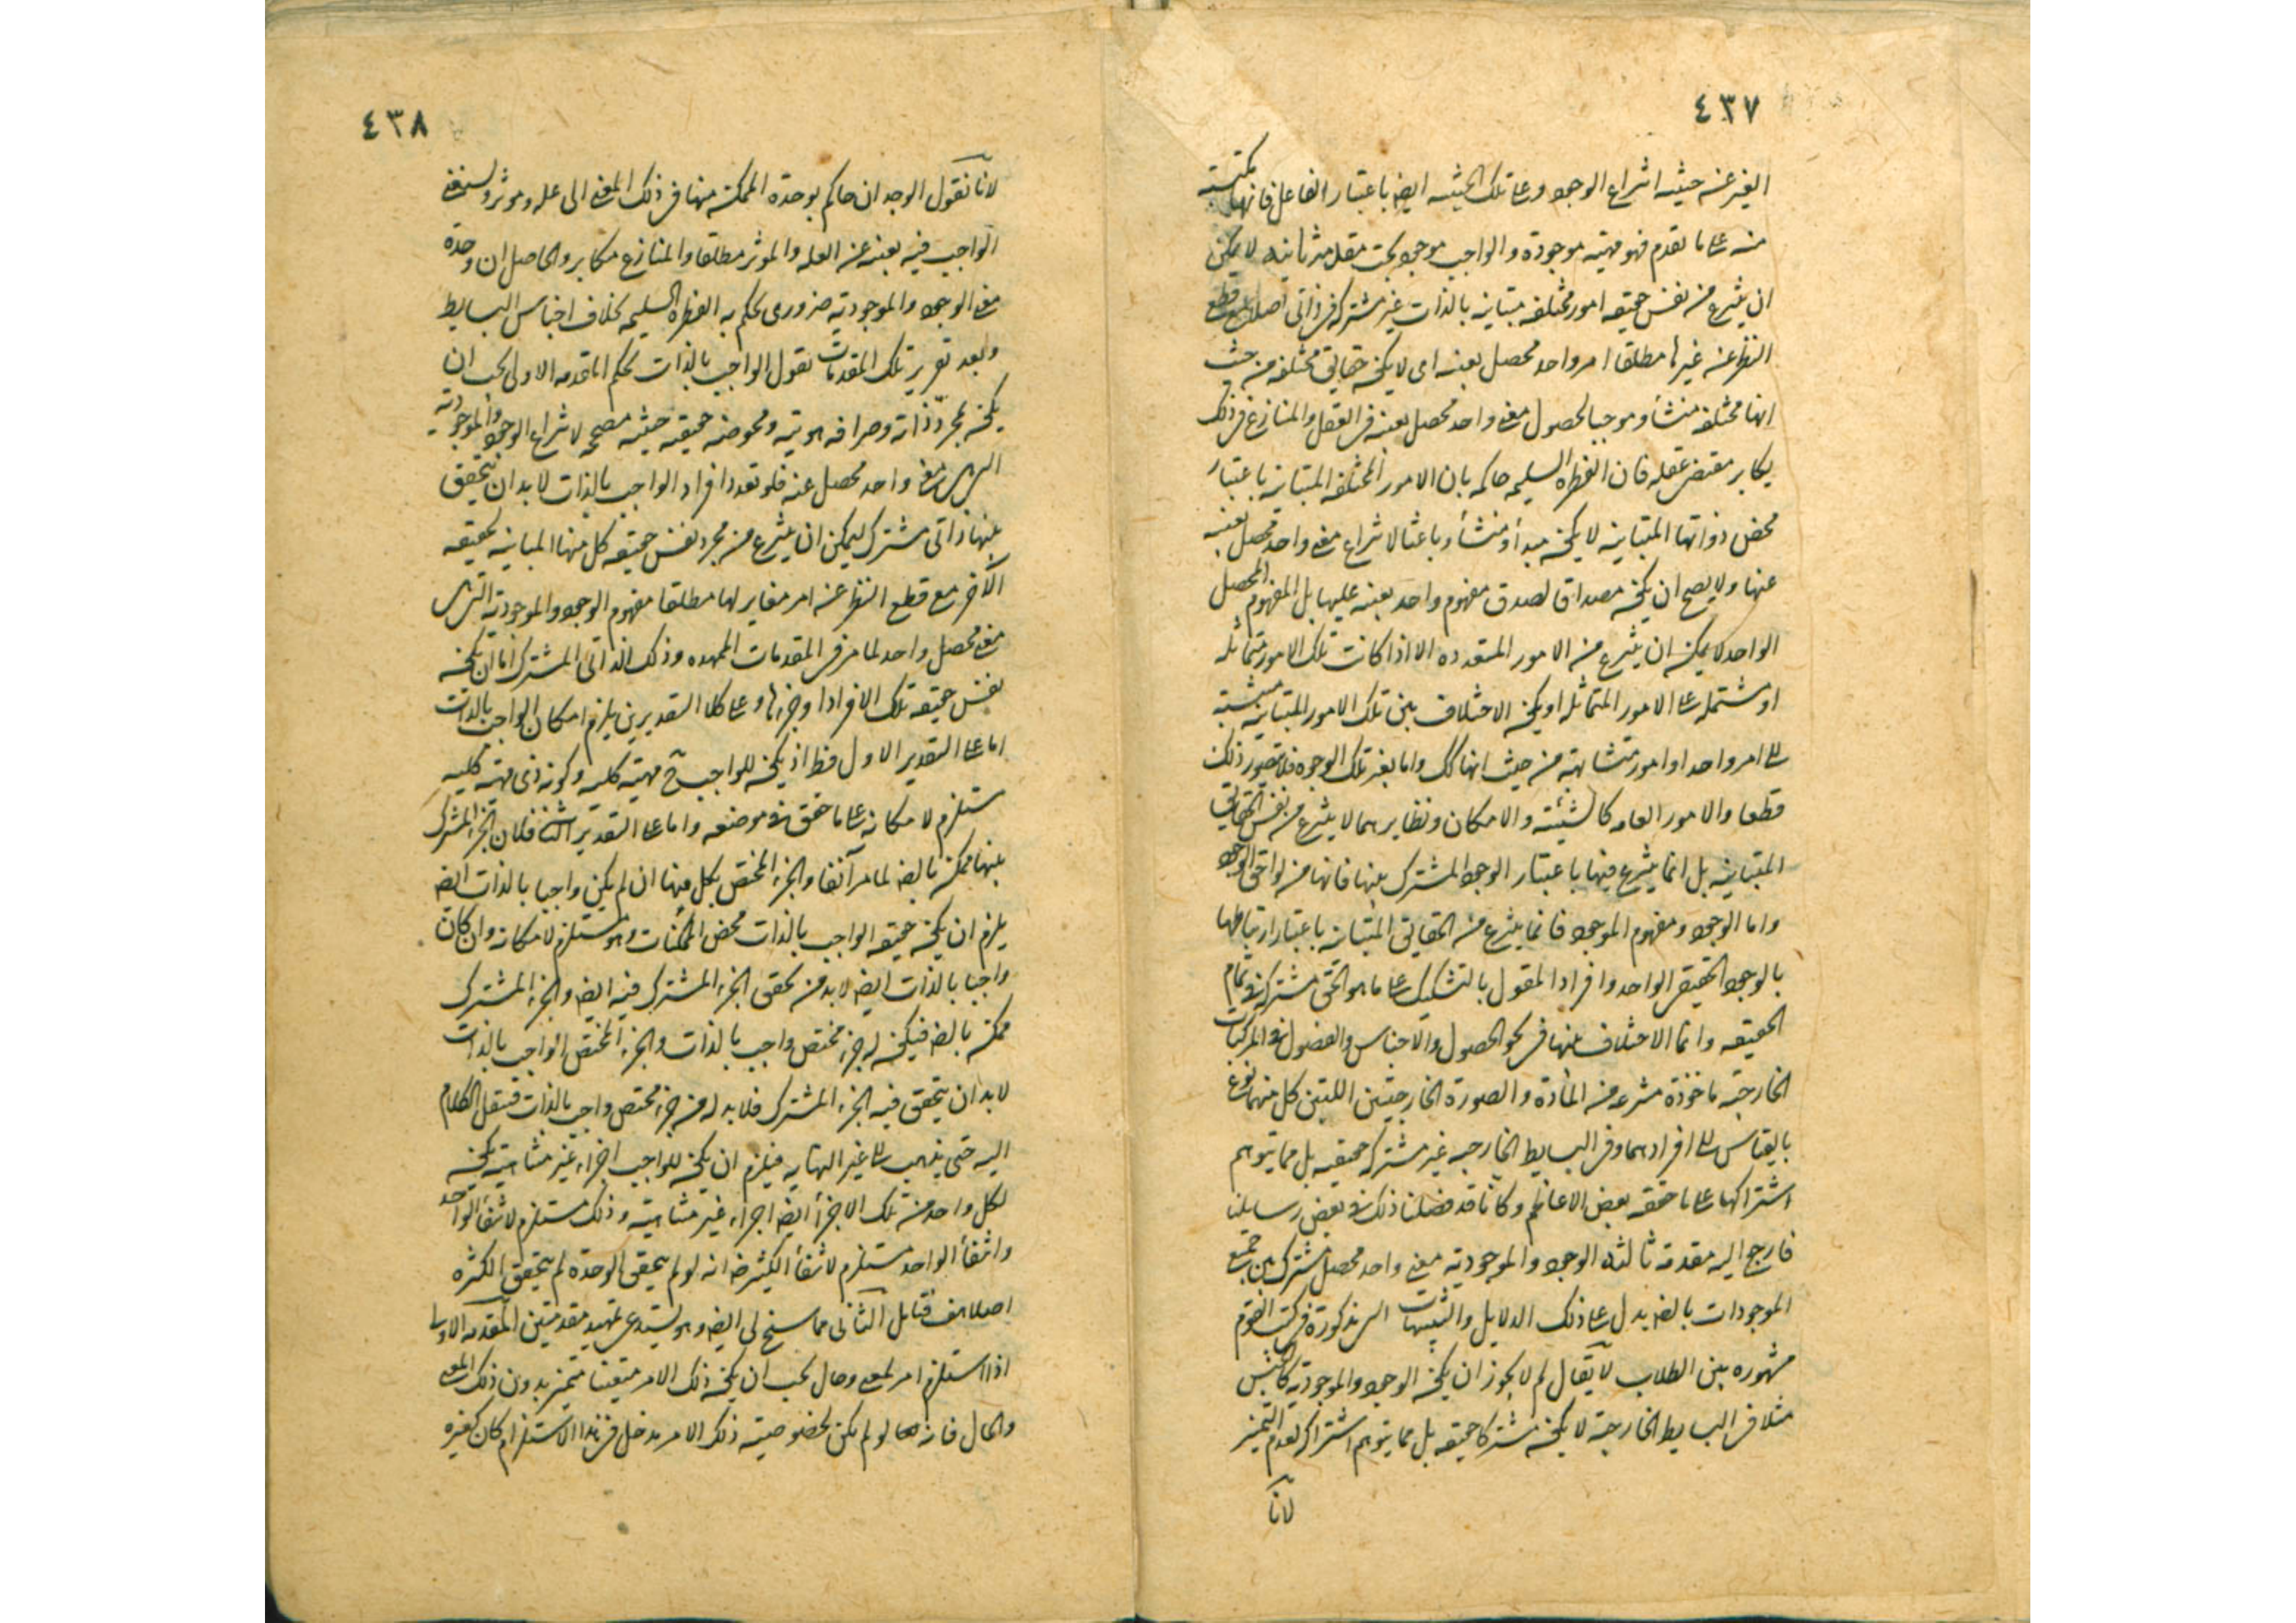 ٤٣٧
الغير عنه حيثية انتزاع الوجود وعلى تلك الحيثية ايضا باعتبار الفاعل فانها مكتسبة
منه على ما تقدم فهو مهية موجودة والواجب موجود بحت مقدمة ثانية لا يمكن
ان ينتزع من نفس حقيقة امور مختلفة متباينة بالذات غير مشتركة فى ذاتى اصلا مع قطع
النظر عن غيرها مطلقا امر واحد محصل بعينه اى لا يكون حقايق مختلفة من حيث
انها مختلفة منشأ وموجبا لحصول معنى واحد محصل بعينه فى العقل والمنازع فى ذلك
يكابر مقتضى عقله فان الفطرة السليمة حاكمة بان الامور المختلفة المتباينة باعتبار
محض ذواتها المتباينة لا يكون مبدأ ومنشأ وباعثا لانتزاع معنى واحد محصل بعينه
عنها ولا يصح ان يكون مصداقا لصدق مفهوم واحد بعينه عليها بل المفهوم المحصل
الواحد لا يمكن ان ينتزع من الامور المتعددة الا اذا كانت تلك الامور متماثلة
او مشتملة على الامور المتماثلة او يكون الاختلاف بين تلك الامور المتباينة منتسبة
الى امر واحد او امور متشابهة من حيث انها كك واما بغير تلك الوجوه فلا يتصور ذلك
قطعا والامور العامة كالشيئية والامكان ونظايرهما لا ينتزع من نفس الحقايق
المتباينة بل انما ينتزع فيها باعتبار الوجود المشترك بينها فانها من لواحق الوجود
واما الوجود ومفهوم الموجود فانما ينتزع من الحقايق المتباينة باعتبار ارتباطها
بالوجود الحقيقى الواحد وافراد المقول بالتشكيك على ما هو الحق مشتركة فى تمام
الحقيقة وانما الاختلاف بينها فى نحو الحصول والاجناس والفصول فى المركبات
الخارجية ماخوذة منتزعة من المادة والصورة الخارجيتين اللتين كل منهما نوع
بالقياس الى افرادهما وفى البسايط الخارجية غير مشتركة حقيقة بل مما يتوهم
اشتراكها على ما حققه بعض الاعاظم وكانا قد فصلنا ذلك فى بعض رسايلنا
فارجع اليه مقدمة ثالثة الوجود والموجودية معنى واحد محصل مشترك بين جميع
الموجودات بالضه يدل على ذلك الدلايل والتنبيهات المذكورة فى كتب القوم
مشهورة بين الطلاب لا يقال لم لا يجوز ان يكون الوجود والموجودية كالجنس
مثلا فى البسايط الخارجية لا يكون مشتركا حقيقة بل مما يتوهم اشتراكه لعدم التميز
لانا
٤٣٨
لانا نقول الوجدان حاكم بوحدة الممكنة منها فى ذلك المعنى الى علة وموثر ويستغنى
الواجب فيه بعينه عن العلة والموثر مطلقا والمنازع مكابر والحاصل ان وحدة
معنى الوجود والموجودية ضرورى يحكم به الفطرة السليمة بخلاف اجناس البسايط
وبعد تقرير تلك المقدمات نقول الواجب بالذات بحكم المقدمة الاولى يجب ان
يكون بمجرد ذاته وصرافة هويته ومحوضة حقيقته حيثية مصححة لانتزاع الوجود والموجودية
الذى هى معنى واحد محصل عنه فلو تعدد افراد الواجب بالذات لابد ان يتحقق
بينها ذاتى مشترك ليمكن ان ينتزع من مجرد نفس حقيقة كل منها المباينة لحقيقة
الآخر مع قطع النظر عن امر مغاير لها مطلقا مفهوم الوجود والموجودية الذى هى
معنى محصل واحد لما مر فى المقدمات الممهدة وذلك الذاتى المشترك اما ان يكون
نفس حقيقة تلك الافراد او جزءها وعلى كلا التقديرين يلزم امكان الواجب بالذات
اما على التقدير الاول فظ اذ يكون للواجب ح مهية كلية وكونه ذى مهية كلية
مستلزم لامكانه على ما حقق فى موضعه واما على التقدير الثانى فلان الجزء المشترك
بينها ممكنة بالضه لما مر آنفا والجزء المختص بكل منها ان لم يكن واجبا بالذات ايضا
يلزم ان يكون حقيقة الواجب بالذات محض الممكنات وهو مستلزم لامكانه وان كان
واجبا بالذات ايضا لابد من تحقق الجزء المشترك فيه ايضا والجزء المشترك
ممكنة بالضه فيكون له جزء مختص واجب بالذات والجزء المختص الواجب بالذات
لابد ان يتحقق فيه الجزء المشترك فلابد له من جزء مختص واجب بالذات فننقل الكلام
اليه حتى يذهب الى غير النهاية فيلزم ان يكون للواجب اجزاء غير متناهية يكون
لكل واحد من تلك الاجزأ ايضا اجزاء غير متناهية وذلك مستلزم لانتفأ الواحد
وانتفأ الواحد مستلزم لانتفأ الكثير ضه انه لو لم يتحقق الوحدة لم يتحقق الكثرة
اصلا هف فتأمل الثانى مما سنح لى ايضا وهو يستدعى تمهيد مقدمتين المقدمة الاولى
اذا استلزم امر لمعنى وحال يجب ان يكون ذلك الامر متعينا متميز بدون ذلك المعنى
والحال فانه لو لم يكن لخصوصية ذلك الامر مدخل فى هذا الاستلزام كان كغيره